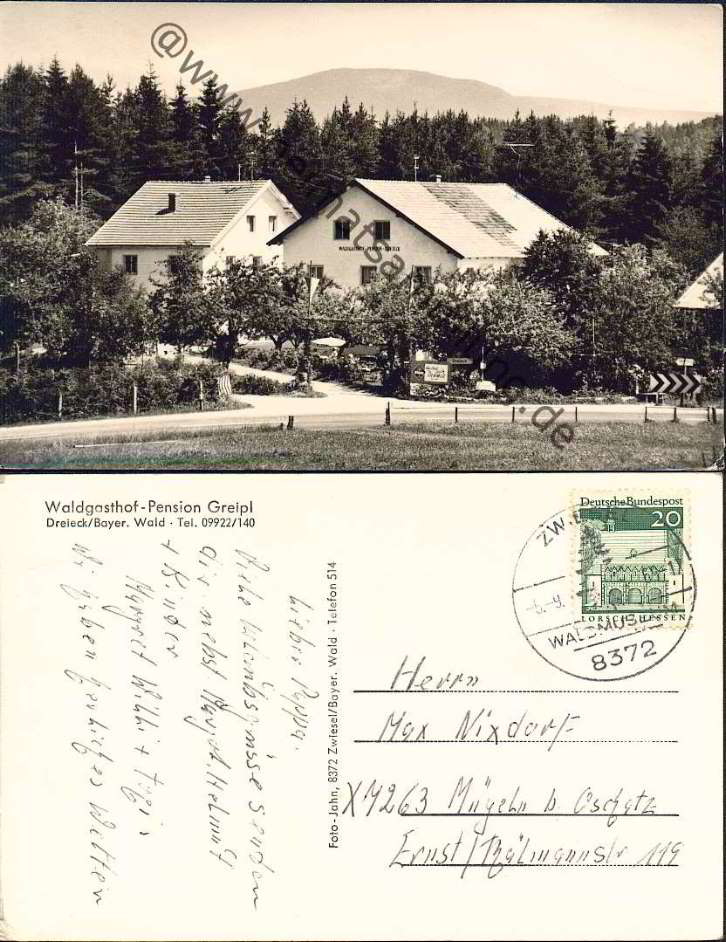 @www.heimatsammlung.de
WALDGASTHOF-PENSION-GREIPL
Waldgasthof-Pension Greipl
Dreieck/Bayer. Wald · Tel. 09922/140
Lieber Pappa.
Liebe Urlaubsgrüsse senden
dir nebst Angeh. Helmut
+ Kinder
Margret Willi +
Wir haben herrliches Wetter
Foto-Jahn, 8372 Zwiesel/Bayer. Wald · Telefon 514
Deutsche Bundespost
20
LORSCH/HESSEN
ZW
-6.-9.
WALDMUSEUM
8372
Herrn
Max Nixdorf
X7263 Mügeln b. Oschatz
Ernst/Thälmannstr 119